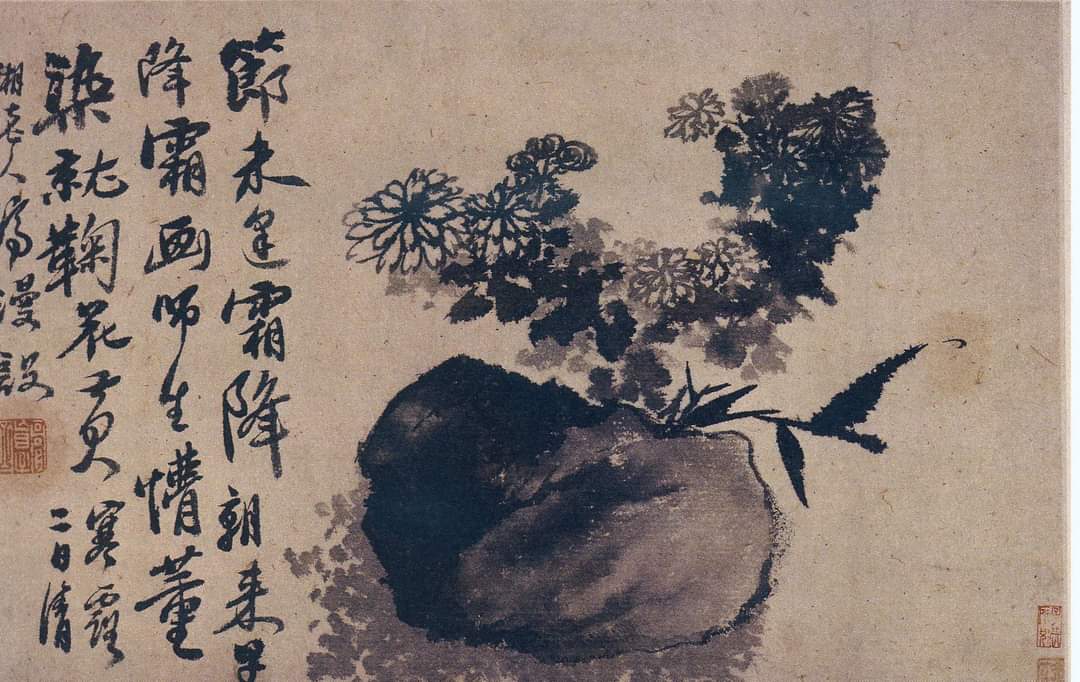 節未逢霜降朝来早
降霜画師生懵董
染就鞠花黄寒露
二日清
湘老人濟漫設